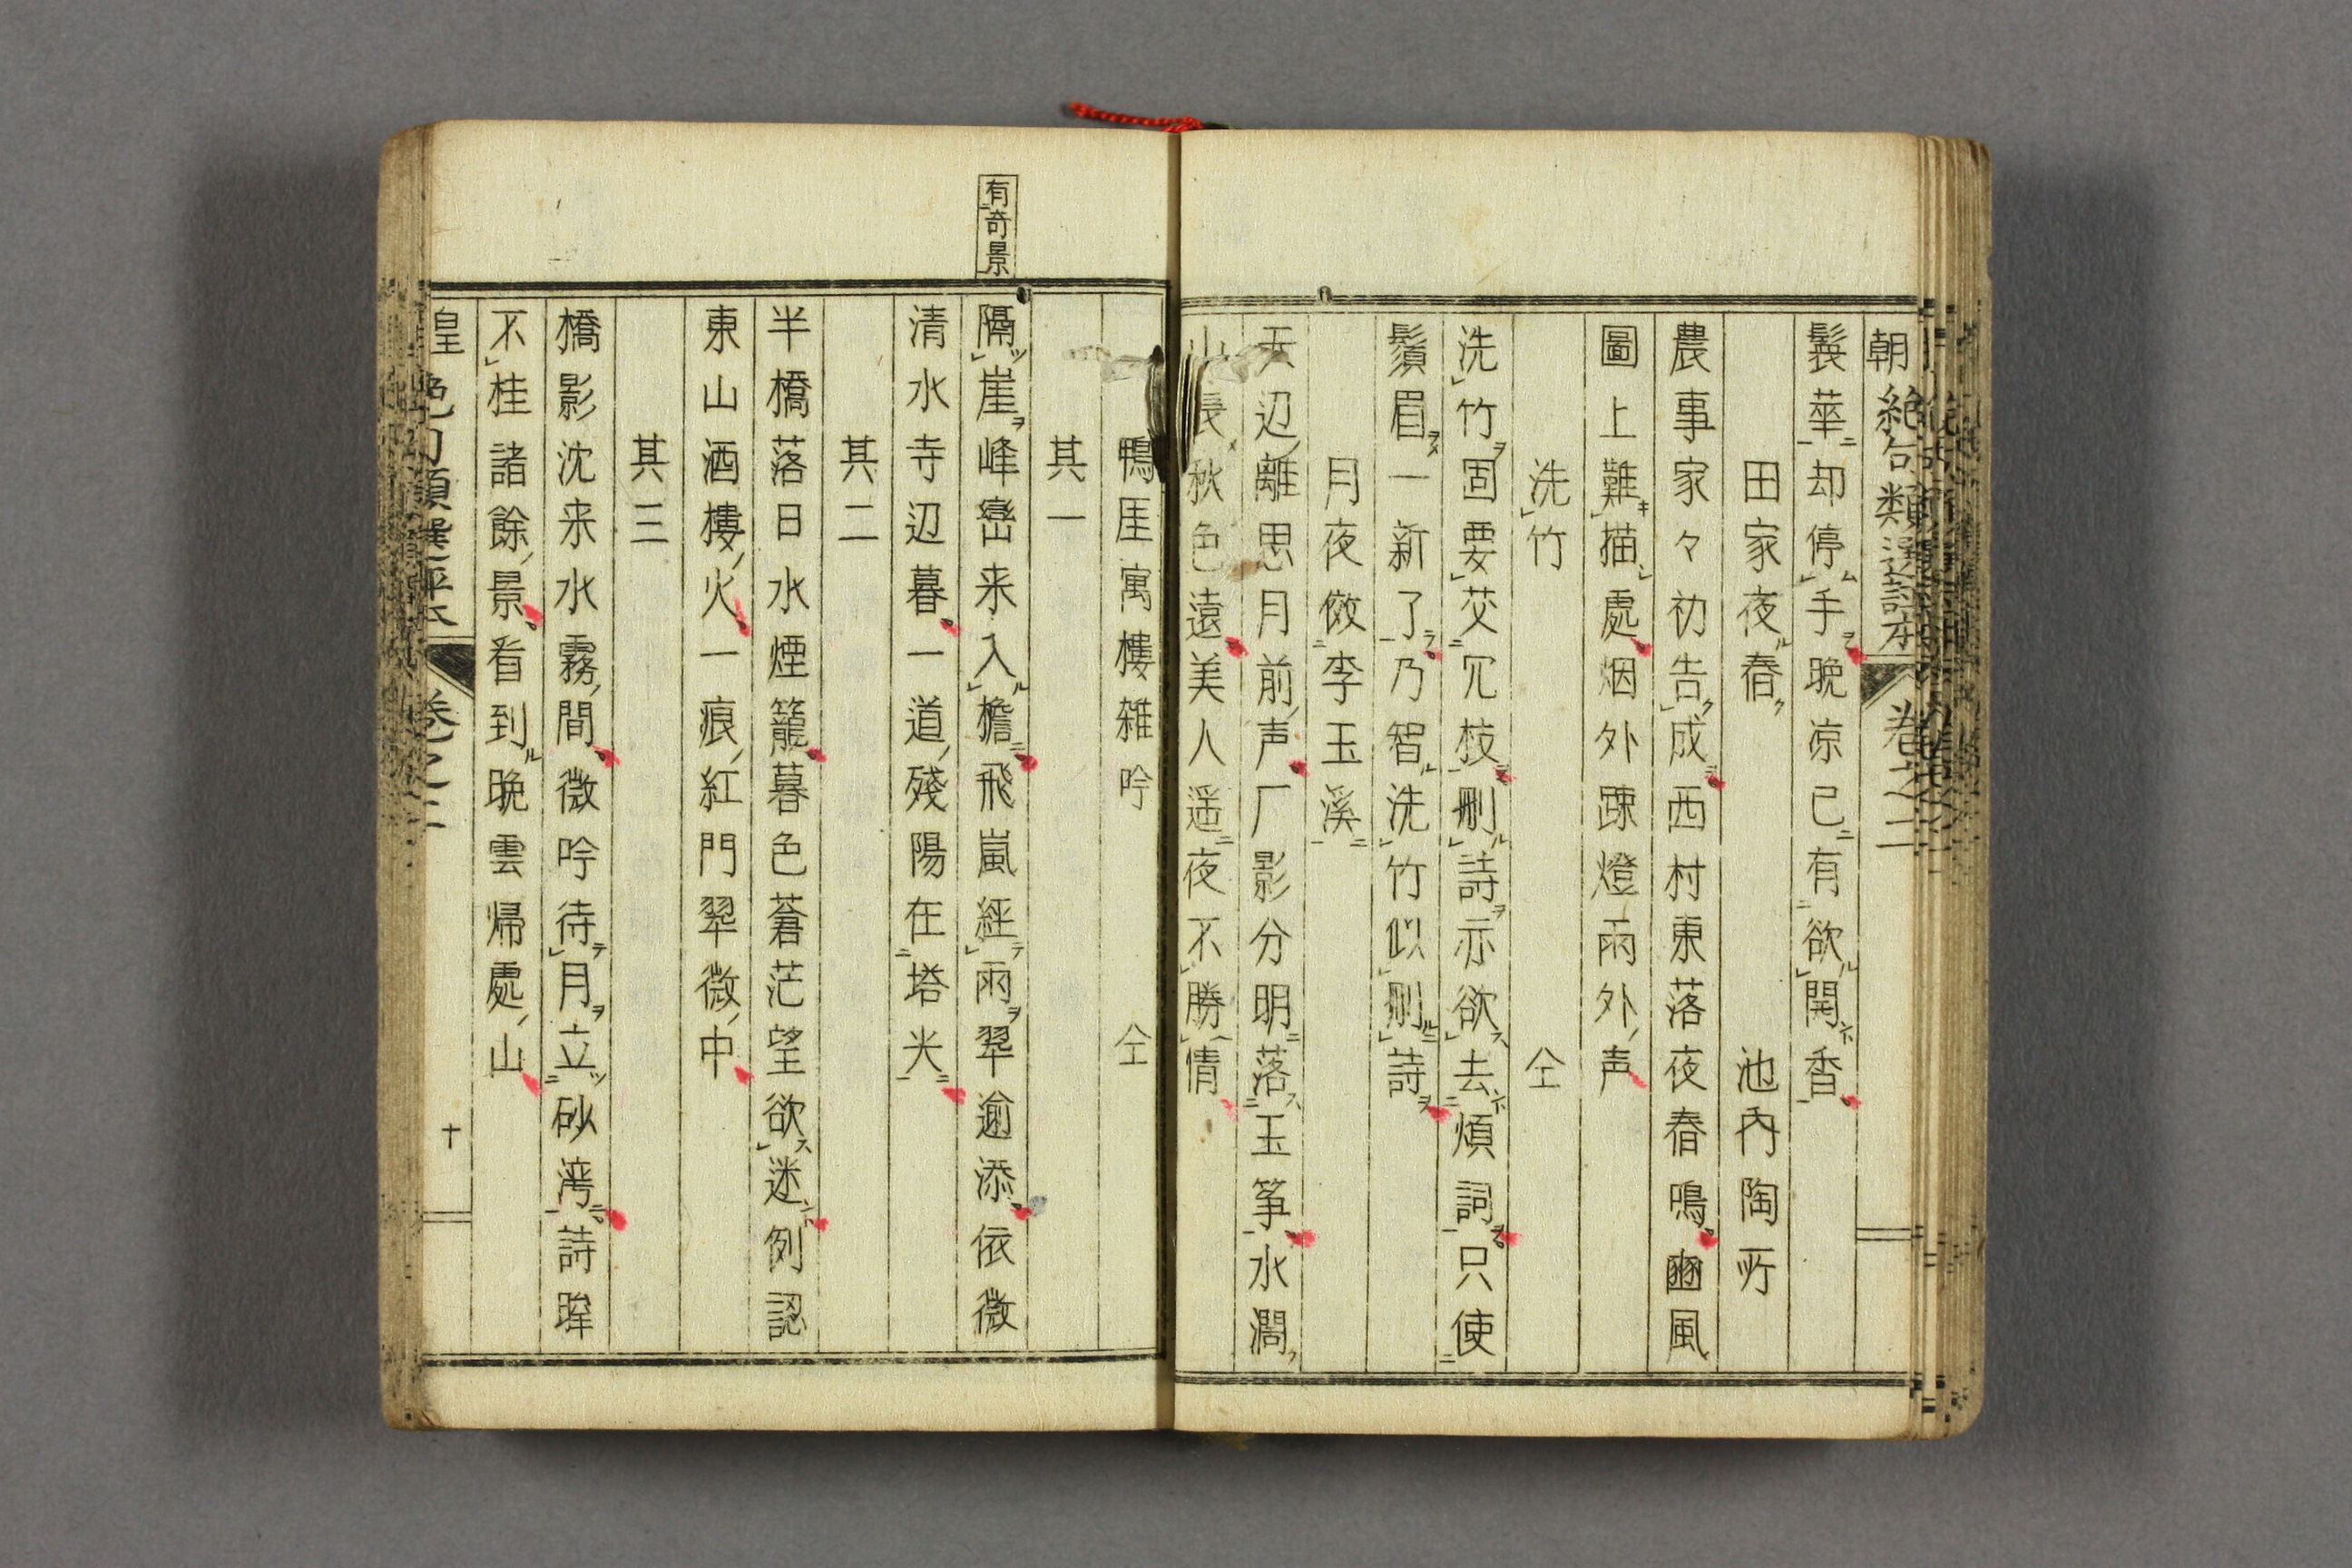 朝 絶句類選評本 卷之二
鬓華却停手晩凉已有欲開香
田家夜舂 池內陶所
農事家々初告成西村東落夜舂鳴豳風
圖上難描處烟外踈燈雨外声
洗竹 仝
洗竹固要芟冗枝刪詩亦欲去煩詞只使
鬚眉一新了乃智洗竹似刪詩
月夜傚李玉溪
天辺離思月前声厂影分明落玉筝水濶
山長秋色遠美人遥夜不勝情
鴨厓寓樓雑吟 仝
其一
有奇景
隔崖峰巒来入檐飛嵐経雨翠逾添依微
清水寺辺暮一道殘陽在塔尖
其二
半橋落日水煙籠暮色蒼茫望欲迷例認
東山酒樓火一痕紅門翠微中
其三
橋影沈来水霧間微吟待月立砂湾詩眸
不桂諸餘景看到晩雲帰處山
皇 絶句類選評本 卷之二 十